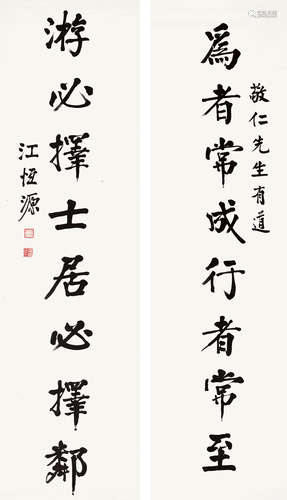 敬仁先生有道
為者常成行者常至
游必擇士居必擇鄰
江恆源